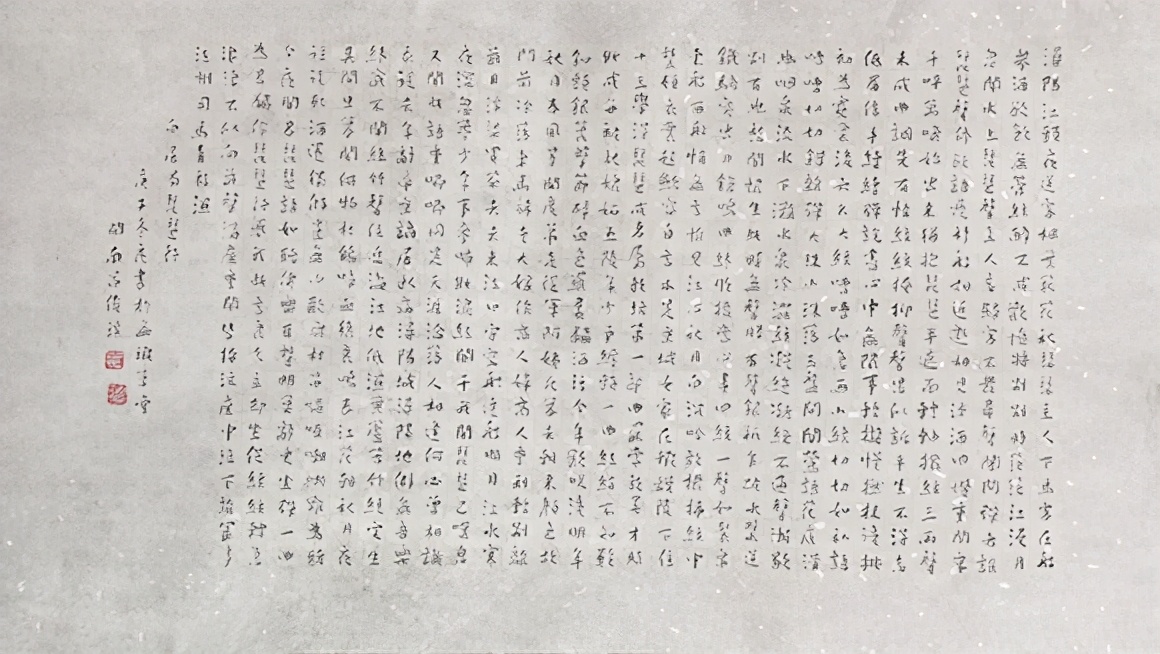 潯陽江頭夜送客楓葉荻花秋瑟瑟主人下馬客在船
舉酒欲飲無管絃醉不成歡慘將別別時茫茫江浸月
忽聞水上琵琶聲主人忘歸客不發尋聲闇問彈者誰
琵琶聲停欲語遲移船相近邀相見添酒回燈重開宴
千呼萬喚始出來猶抱琵琶半遮面轉軸撥絃三兩聲
未成曲調先有情絃絃掩抑聲聲思似訴平生不得志
低眉信手續續彈說盡心中無限事輕攏慢撚抹復挑
初為霓裳後六幺大絃嘈嘈如急雨小絃切切如私語
嘈嘈切切錯雜彈大珠小珠落玉盤間關鶯語花底滑
幽咽泉流水下灘水泉冷澀絃凝絕凝絕不通聲漸歇
別有幽愁闇恨生此時無聲勝有聲銀瓶乍破水漿迸
鐵騎突出刀鎗鳴曲終收撥當心畫四絃一聲如裂帛
東船西舫悄無言唯見江心秋月白沈吟放撥插絃中
整頓衣裳起斂容自言本是京城女家在蝦蟆陵下住
十三學得琵琶成名屬教坊第一部曲罷常教善才服
妝成每被秋娘妒五陵年少爭纏頭一曲紅綃不知數
鈿頭銀篦擊節碎血色羅裙翻酒污今年歡笑復明年
秋月春風等閒度弟走從軍阿姨死暮去朝來顏色故
門前冷落車馬稀老大嫁作商人婦商人重利輕別離
前月浮梁買茶去去來江口守空船繞船明月江水寒
夜深忽夢少年事夢啼妝淚紅闌干我聞琵琶已嘆息
又聞此語重唧唧同是天涯淪落人相逢何必曾相識
我從去年辭帝京謫居臥病潯陽城潯陽地僻無音樂
終歲不聞絲竹聲住近湓江地低濕黃蘆苦竹繞宅生
其間旦暮聞何物杜鵑啼血猿哀鳴春江花朝秋月夜
往往取酒還獨傾豈無山歌與村笛嘔啞嘲哳難為聽
今夜聞君琵琶語如聽仙樂耳暫明莫辭更坐彈一曲
為君翻作琵琶行感我此言良久立卻坐促絃絃轉急
淒淒不似向前聲滿座重聞皆掩泣座中泣下誰最多
江州司馬青衫濕
白居易琵琶行
庚子冬夜書於